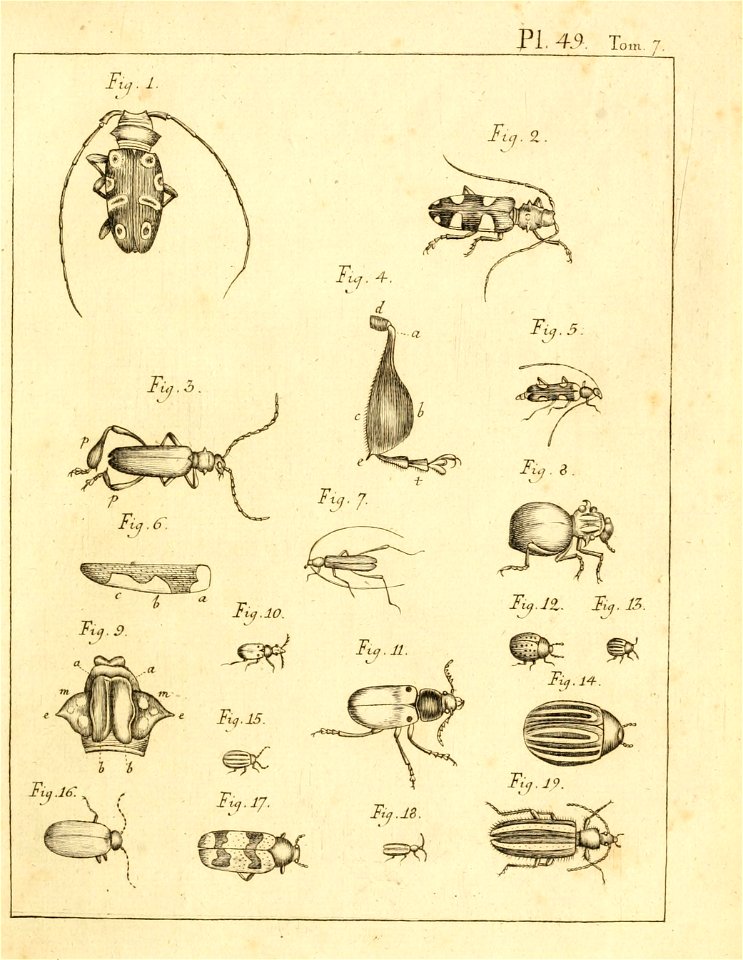 Pl. 49. Tom. 7.
Fig. 1.
Fig. 2.
Fig. 4.
d
a
c
b
e
t
Fig. 5.
Fig. 3.
p
p
Fig. 6.
c b a
Fig. 7.
Fig. 8.
Fig. 9.
a a
m m
e e
b b
Fig. 10.
Fig. 11.
Fig. 12. Fig. 13.
Fig. 14.
Fig. 15.
Fig. 16.
Fig. 17.
Fig. 18.
Fig. 19.